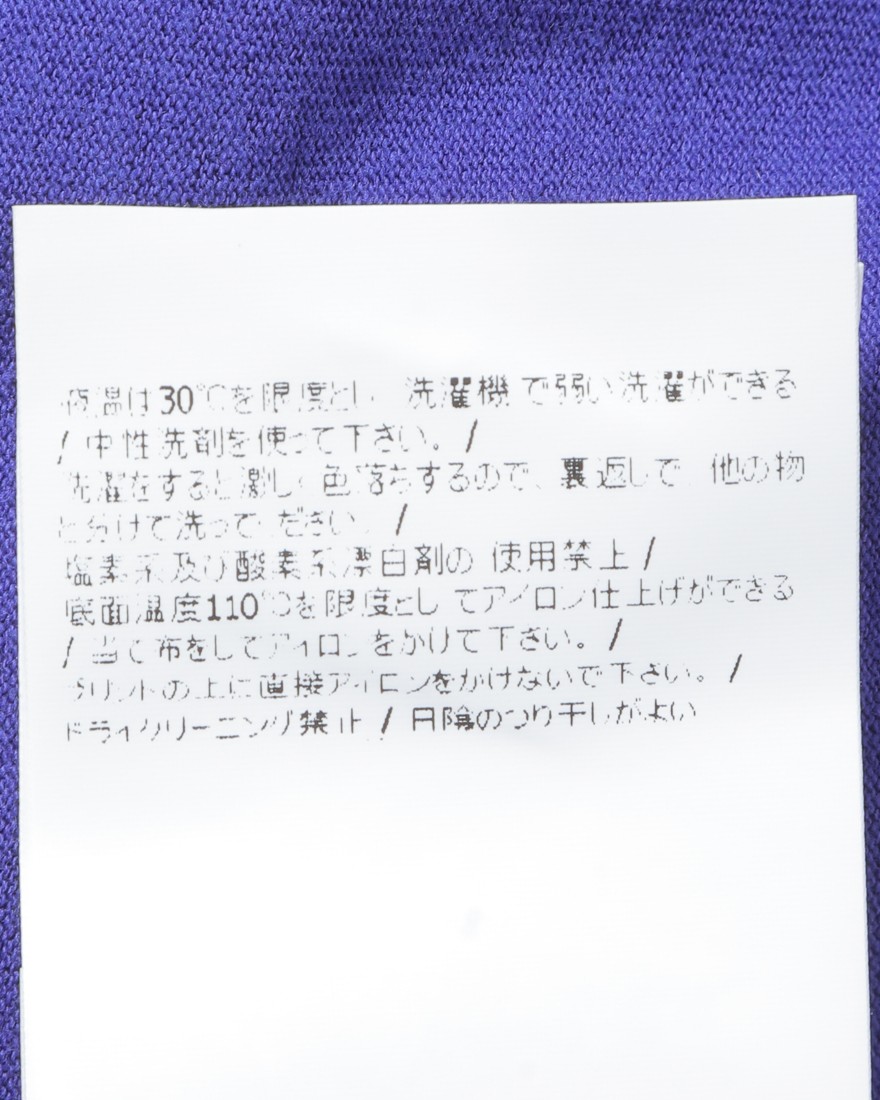 液温は30℃を限度とし、洗濯機で弱い洗濯ができる
/ 中性洗剤を使って下さい。 /
洗濯をすると激しく色落ちするので、裏返しで、他の物
と分けて洗ってください。 /
塩素系及び酸素系漂白剤の 使用禁止 /
底面温度110℃を限度としてアイロン仕上げができる
/ 当て布をしてアイロンをかけて下さい。 /
プリントの上に直接アイロンをかけないで下さい。 /
ドライクリーニング禁止 / 日陰のつり干しがよい